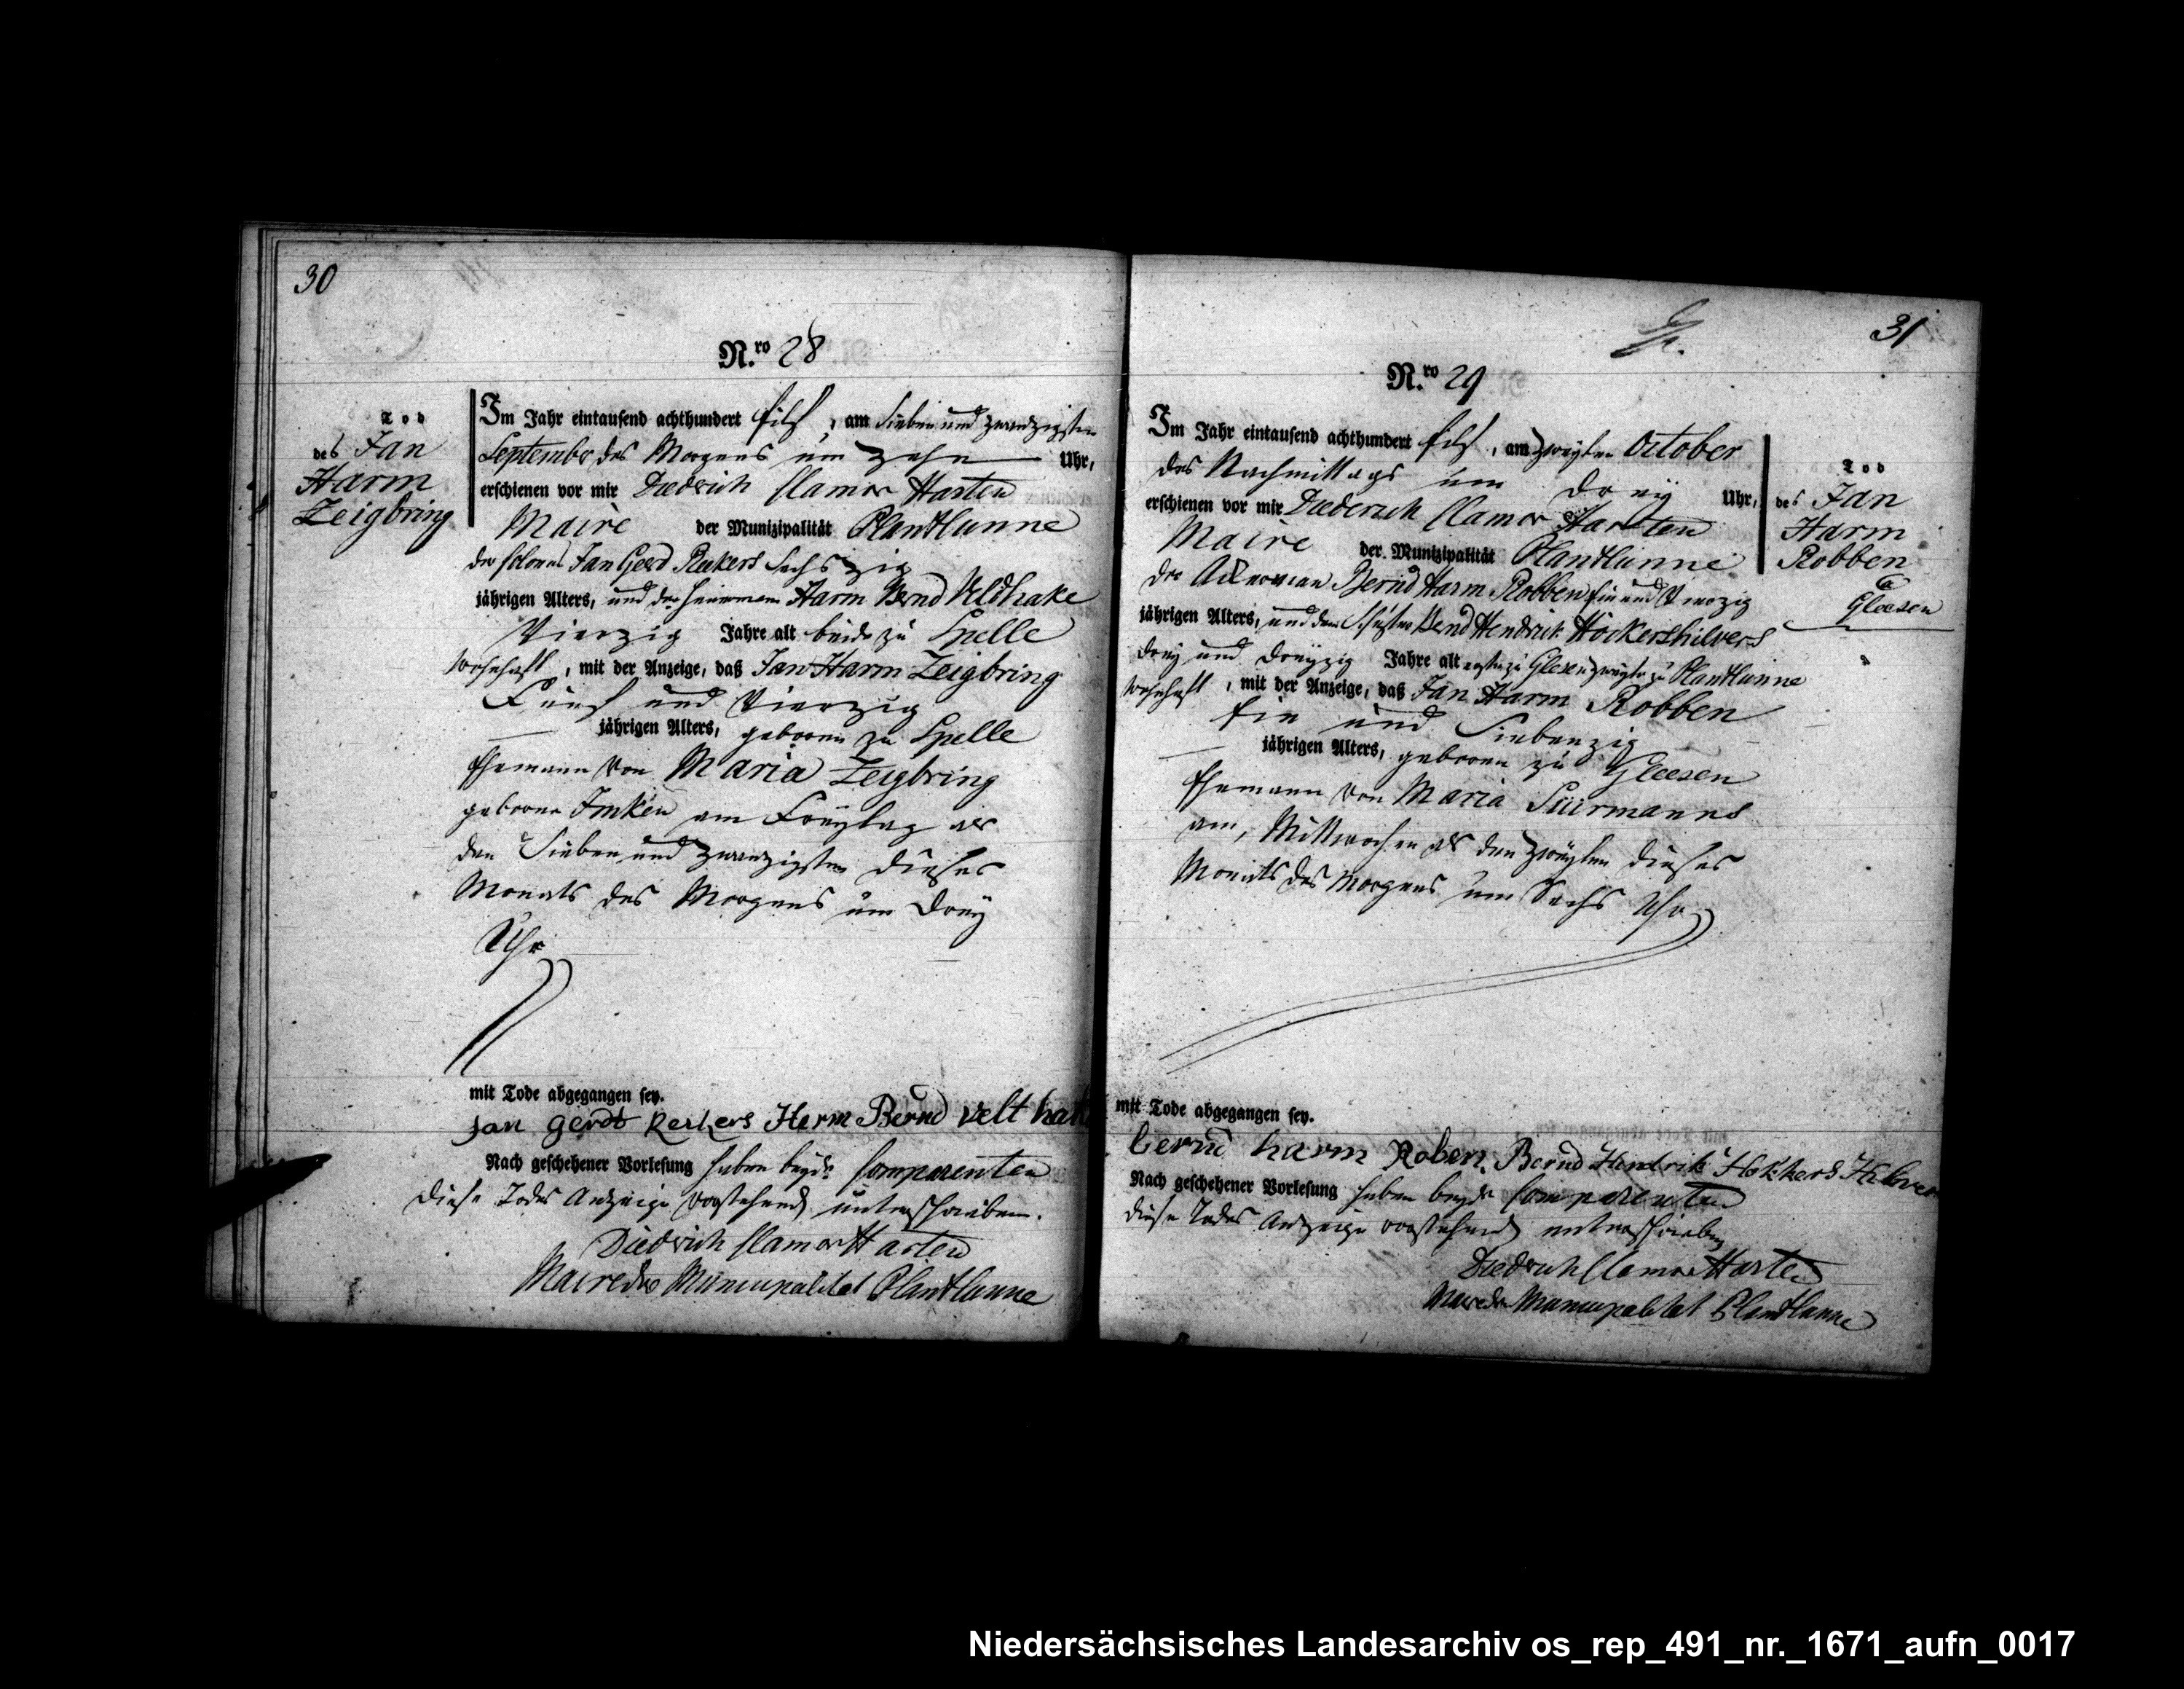 30
N.ro 28
Tod
des Jan
Harm
Zeigbring
Im Jahr eintausend achthundert Eilf, am Sieben und zwanzigsten
September des Morgens um Zehn Uhr,
erschienen vor mir Diedrich Clamor Harten
Maire der Munizipalität Plantlunne
der Colonus Jan Gerd Reekers Sechszig
jährigen Alters, und der Heuermann Harm Bernd Veldhake
Vierzig Jahre alt beide zu Spelle
wohnhaft, mit der Anzeige, daß Jan Harm Zeigbring
Fünf und Vierzig
jährigen Alters, gebooren zu Spelle
Ehemann von Maria Zeigbring
geborne Imken am Freytag als
den Sieben und zwanzigsten dieses
Monats des Morgens um Drey
Uhr
mit Tode abgegangen sey.
Jan gerdt Rekers Herm Bernd velt hake
Nach geschehener Vorlesung haben beyde Comparenten
diese Todes Anzeige vorstehend unterschrieben.
Diedrich Clamor Harten
Maire der Municipalitat Plantlunne
31
N.ro 29
Im Jahr eintausend achthundert Eilf, am zweyten October
des Nachmittags um Drey Uhr,
erschienen vor mir Diederich Clamor Harten
Maire der Munizipalität Plantlünne
der Ackerman Bernd Harm Robben Ein und Vierzig
jährigen Alters, und dem Schuster Bend Hendrick Höckershilvers
drey und dreyzig Jahre alt erster zu Glesen zweyter zu Plantlunne
wohnhaft, mit der Anzeige, daß Jan Harm Robben
Ein und Siebenzig
jährigen Alters, gebooren zu Gleesen
Ehemann von Maria Suurmanns
am, Mittwochen als den zweyten dieses
Monats des Morgens um Sechs Uhr
Tod
des Jan
Harm
Robben
Gleesen
mit Tode abgegangen sey.
bernd harm Roben. Bernd Hendrik Hökkers Hilvers
Nach geschehener Vorlesung haben beyde Comparenten
diese Todes Anzeige vorstehend unterschrieben
Diedrich Clamor Harten
Maire der Municipalitat Plantlunne
Niedersächsisches Landesarchiv os_rep_491_nr._1671_aufn_0017